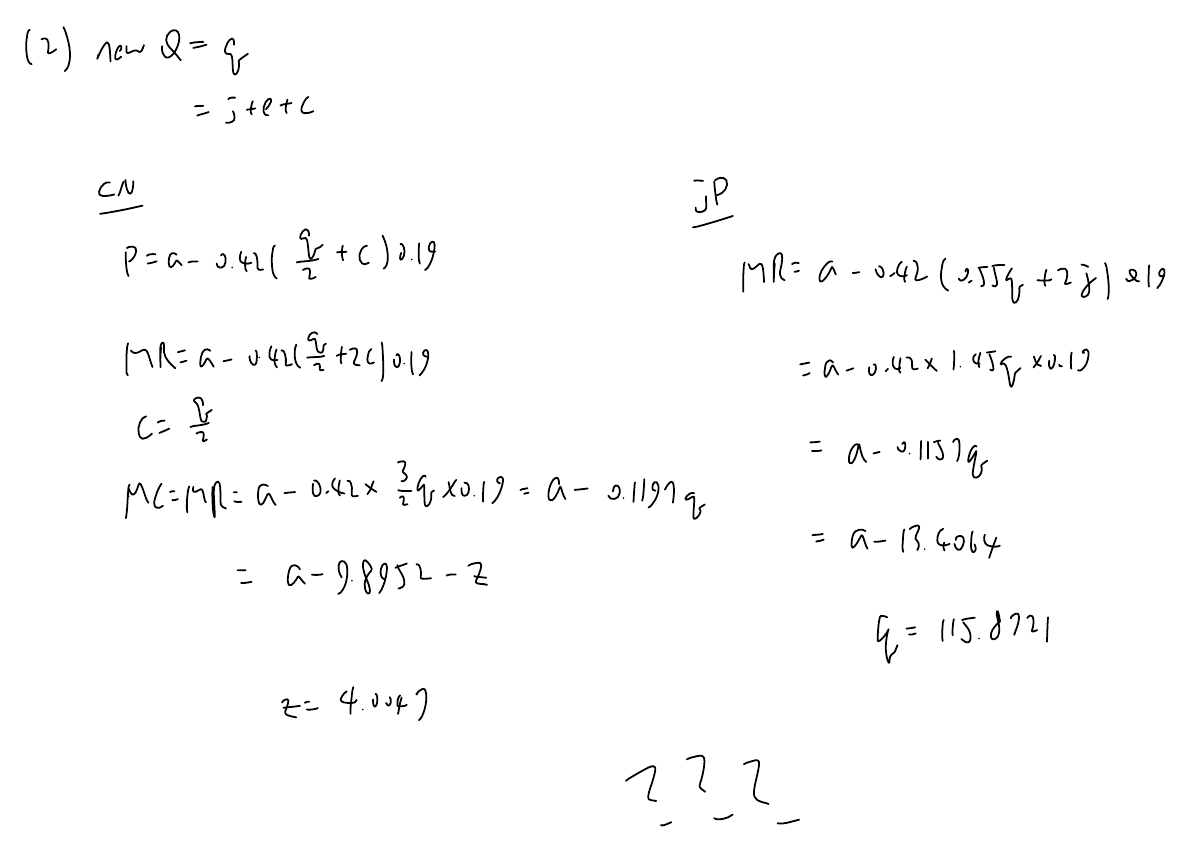 (2) new Q = q
= j+e+c
CN
P = a - 0.42( q/2 + c ) 0.19
MR = a - 0.42( q/2 + 2c ) 0.19
c = q/2
MC = MR = a - 0.42 × 3/2 q × 0.19 = a - 0.1197q
= a - 9.8952 - z
z = 4.0049
jP
MR = a - 0.42 ( 0.55q + 2j ) 0.19
= a - 0.42 × 1.45q × 0.19
= a - 0.1157q
= a - 13.4064
q = 115.8721
???